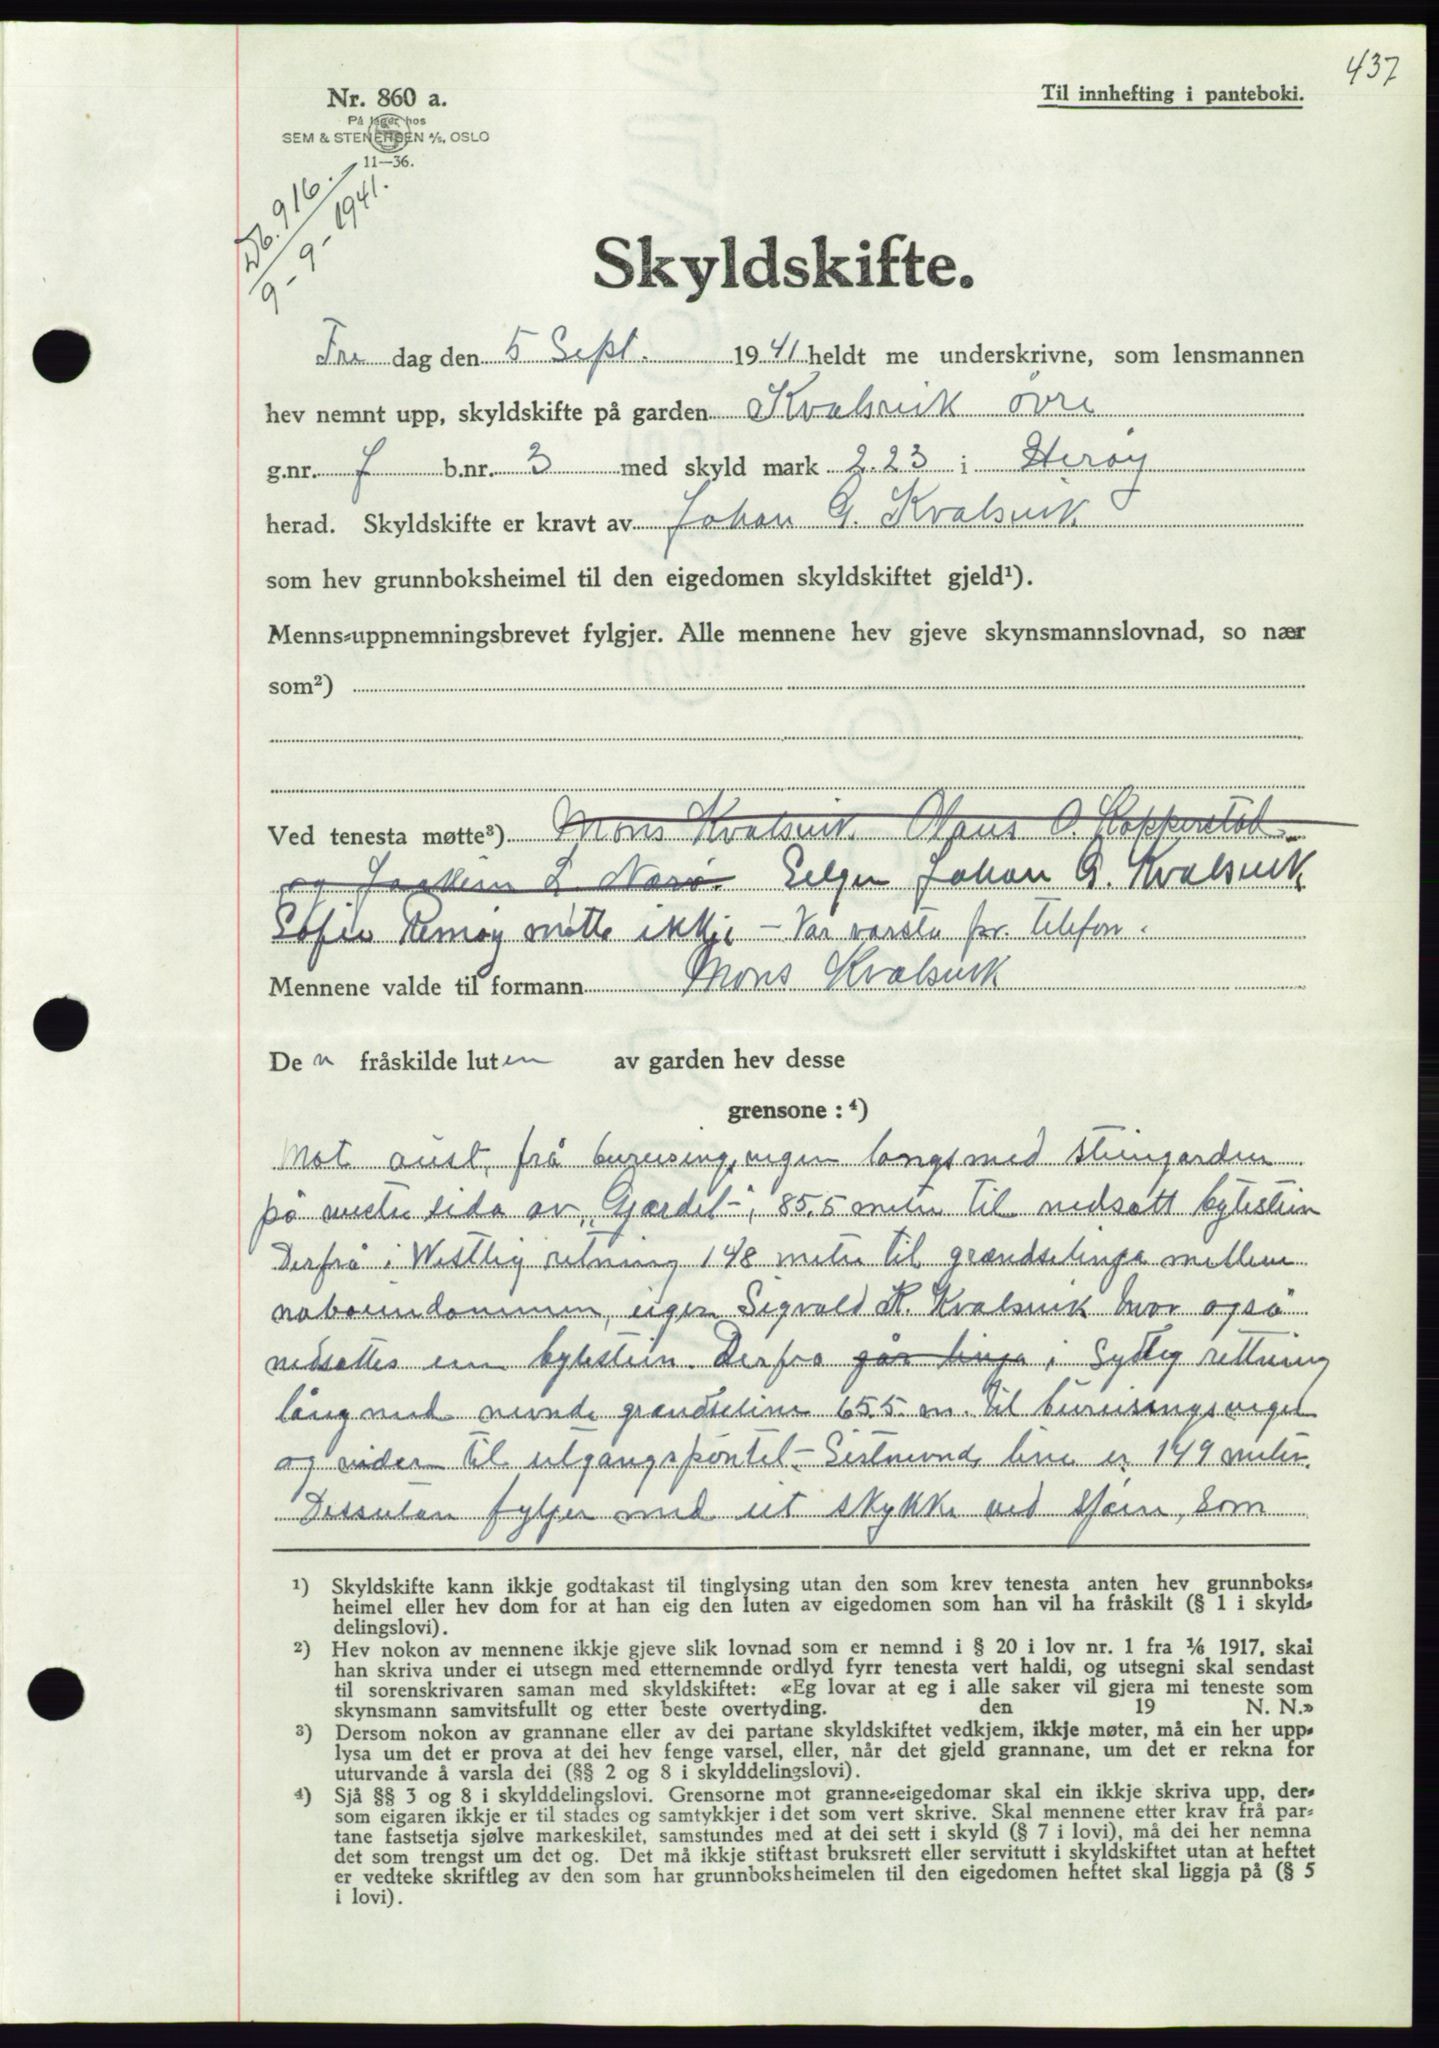 437
Nr. 860 a.
Til innhefting i panteboki.
På lager hos
SEM & STENERSEN A/S, OSLO
11—36.
Db. 916.
9-9-1941.
Skyldskifte.
Fre dag den 5 Sept. 1941 heldt me underskrivne, som lensmannen
hev nemnt upp, skyldskifte på garden Kvalsvik øvre
g.nr. 7 b.nr. 3 med skyld mark 2.23 i Herøy
herad. Skyldskifte er kravt av Johan G. Kvalsvik
som hev grunnboksheimel til den eigedomen skyldskiftet gjeld¹).
Menns-uppnemningsbrevet fylgjer. Alle mennene hev gjeve skynsmannslovnad, so nær
som²)
Ved tenesta møtte³) Mons Kvalsvik Olaus O. Kopperstad
og Joakim L. Nærø. Selger Johan G. Kvalsvik
Sofie Remøy møtte ikkje - Var varsla pr. telefon.
Mennene valde til formann Mons Kvalsvik
Den fråskilde luten av garden hev desse
grensone : ⁴)
Mot aust, frå bureisingsvegen langsmed steingarden
på vestre sida av "Gjerdet", 85,5 meter til nedsatt bytestein
Derfrå i Westlig retning 148 meter til grændselinja mellem
naboeiendommen, eiger Sigvald K. Kvalsvik hvor også
nedsattes en bytestein. Derfra går linja i Sydlig rettning
lång med nevnde grændseline 65.5. m. til bureisingsvegen
og vider til utgangspontet - Sistnevnde line er 149 meter.
Dessutan fylgjer med eit skykke ved sjøen, som
¹) Skyldskifte kann ikkje godtakast til tinglysing utan den som krev tenesta anten hev grunnboks-
heimel eller hev dom for at han eig den luten av eigedomen som han vil ha fråskilt (§ 1 i skyld-
delingslovi).
²) Hev nokon av mennene ikkje gjeve slik lovnad som er nemnd i § 20 i lov nr. 1 fra 1/6 1917, skal
han skriva under ei utsegn med etternemnde ordlyd fyrr tenesta vert haldi, og utsegni skal sendast
til sorenskrivaren saman med skyldskiftet: «Eg lovar at eg i alle saker vil gjera mi teneste som
skynsmann samvitsfullt og etter beste overtyding. den 19 N. N.»
³) Dersom nokon av grannane eller av dei partane skyldskiftet vedkjem, ikkje møter, må ein her upp-
lysa um det er prova at dei hev fenge varsel, eller, når det gjeld grannane, um det er rekna for
uturvande å varsla dei (§§ 2 og 8 i skylddelingslovi).
⁴) Sjå §§ 3 og 8 i skylddelingslovi. Grensorne mot granne-eigedomar skal ein ikkje skriva upp, der-
som eigaren ikkje er til stades og samtykkjer i det som vert skrive. Skal mennene etter krav frå par-
tane fastsetja sjølve markeskilet, samstundes med at dei sett i skyld (§ 7 i lovi), må dei her nemna
det som trengst um det og. Det må ikkje stiftast bruksrett eller servitutt i skyldskiftet utan at heftet
er vedteke skriftleg av den som har grunnboksheimelen til den eigedomen heftet skal liggja på (§ 5
i lovi).